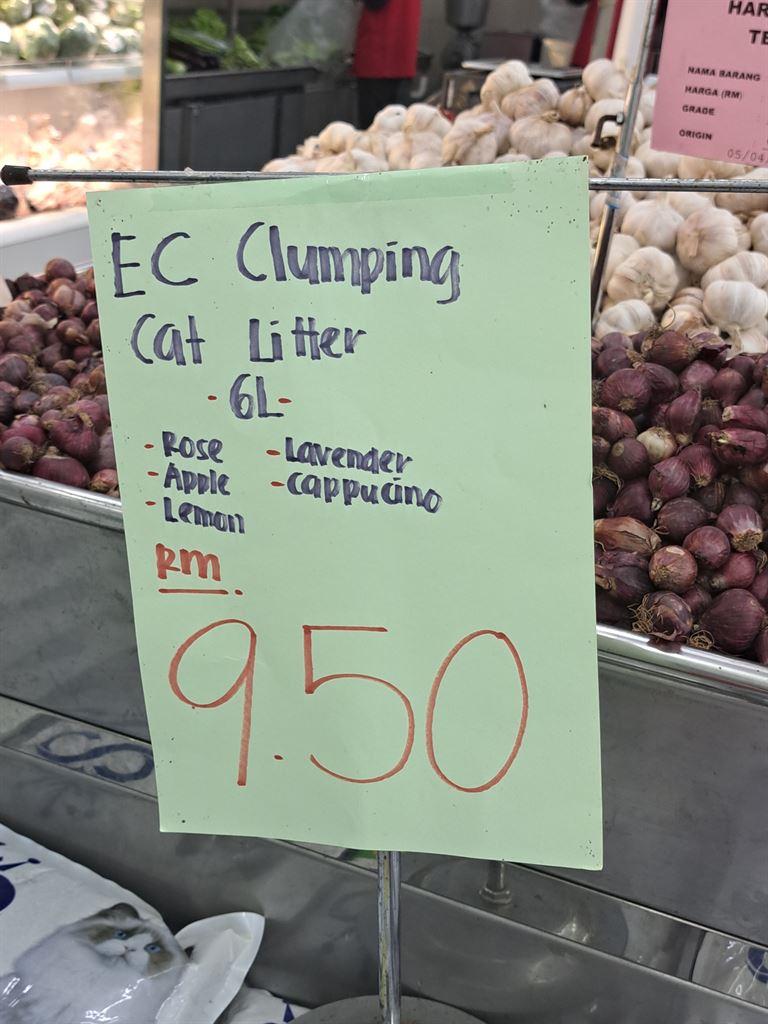 EC Clumping
Cat Litter
- 6L -
- Rose
- Apple
- Lemon
- Lavender
- cappucino
RM
9.50
HAR
TE
NAMA BARANG
HARGA (RM)
GRADE
ORIGIN
05/04